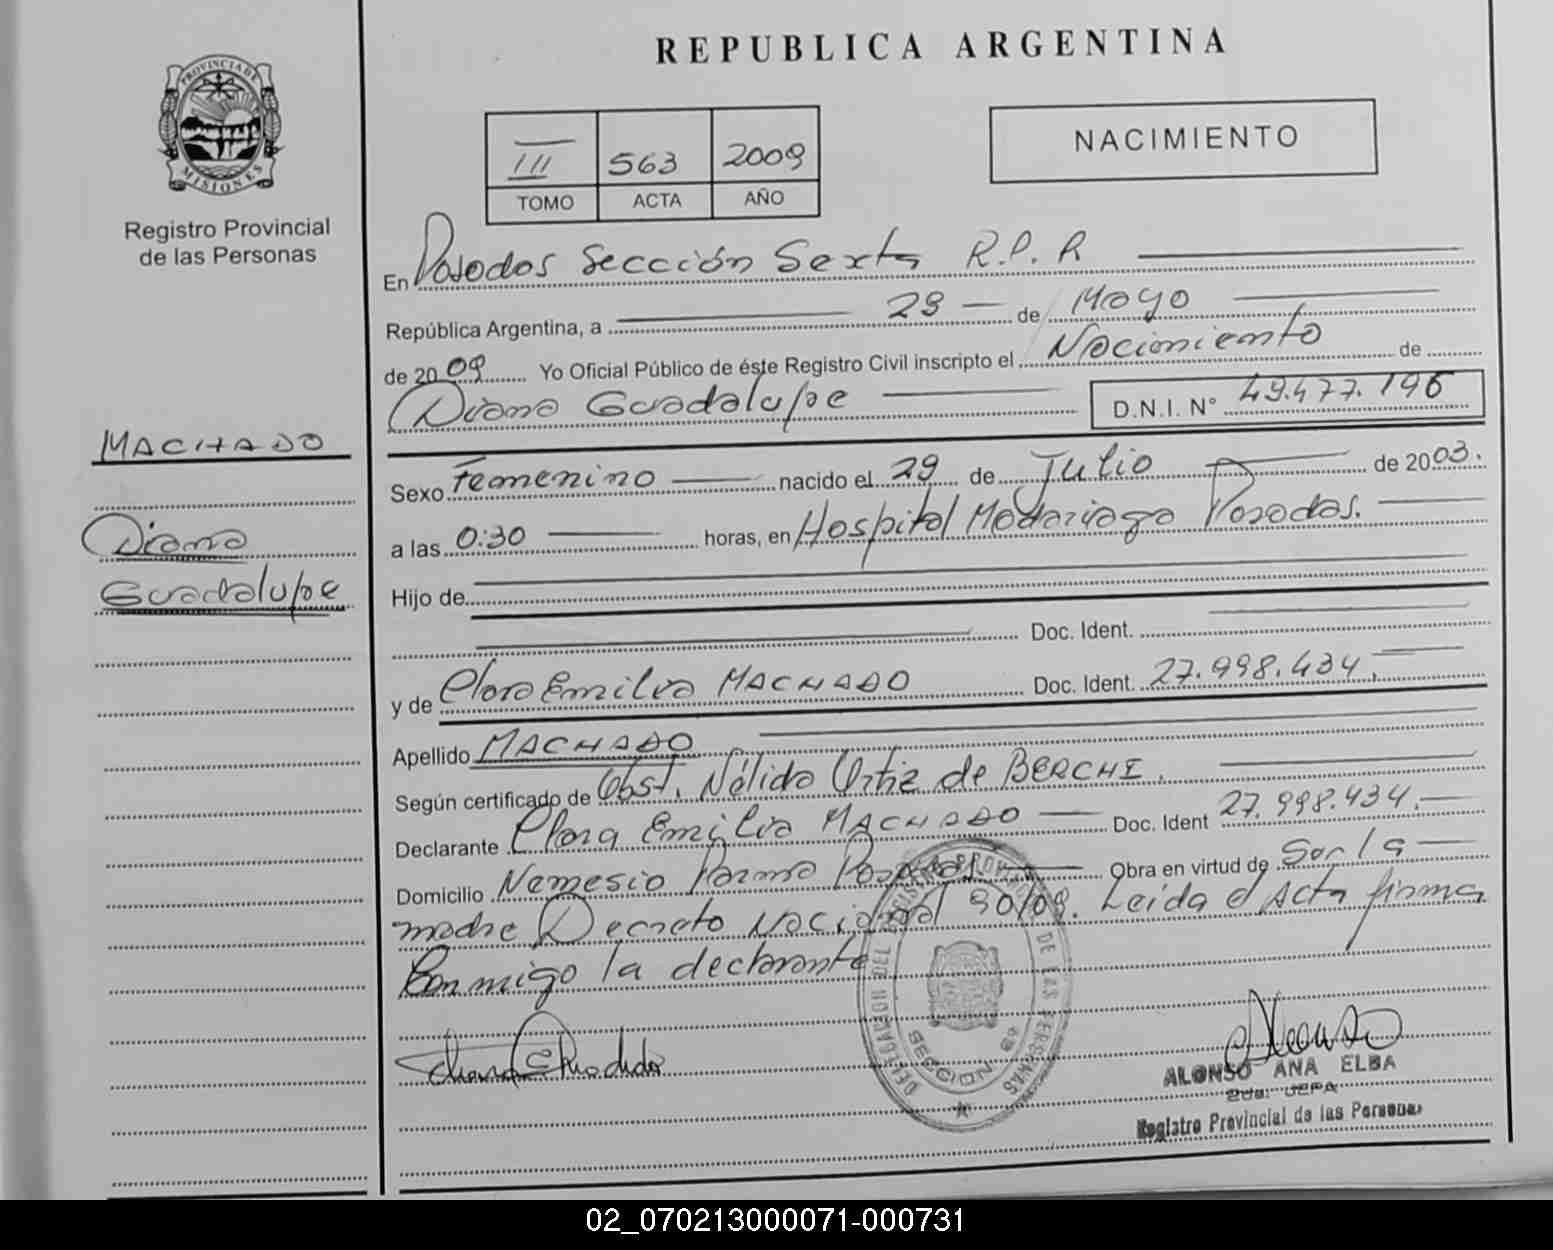 REPUBLICA ARGENTINA
PROVINCIA DE
MISIONES
Registro Provincial
de las Personas
III 563 2009
TOMO ACTA AÑO
NACIMIENTO
En Posadas Sección Sexta R.P.R
República Argentina, a 29 de Mayo
de 2009 Yo Oficial Público de éste Registro Civil inscripto el Nacimiento de
Diana Guadalupe D.N.I. N° 49.477.196
MACHADO
Diana
Guadalupe
Sexo Femenino nacido el 29 de Julio de 2003.
a las 0:30 horas, en Hospital Madariaga Posadas.
Hijo de
Doc. Ident.
y de Clara Emilia MACHADO Doc. Ident. 27.998.434.
Apellido MACHADO
Según certificado de Obst. Nélida Ortiz de BERCHI.
Declarante Clara Emilia MACHADO Doc. Ident 27.998.434.
Domicilio Nemesio Parma Posadas Obra en virtud de Ser la
madre Decreto Nacional 90/09. Leida el Acta firma
Conmigo la declarante
DELEGACION DEL REGISTRO PROVINCIAL DE LAS PERSONAS
SECCION 6ª
ALONSO ANA ELBA
2da. JEFA
Registro Provincial de las Personas
02_070213000071-000731